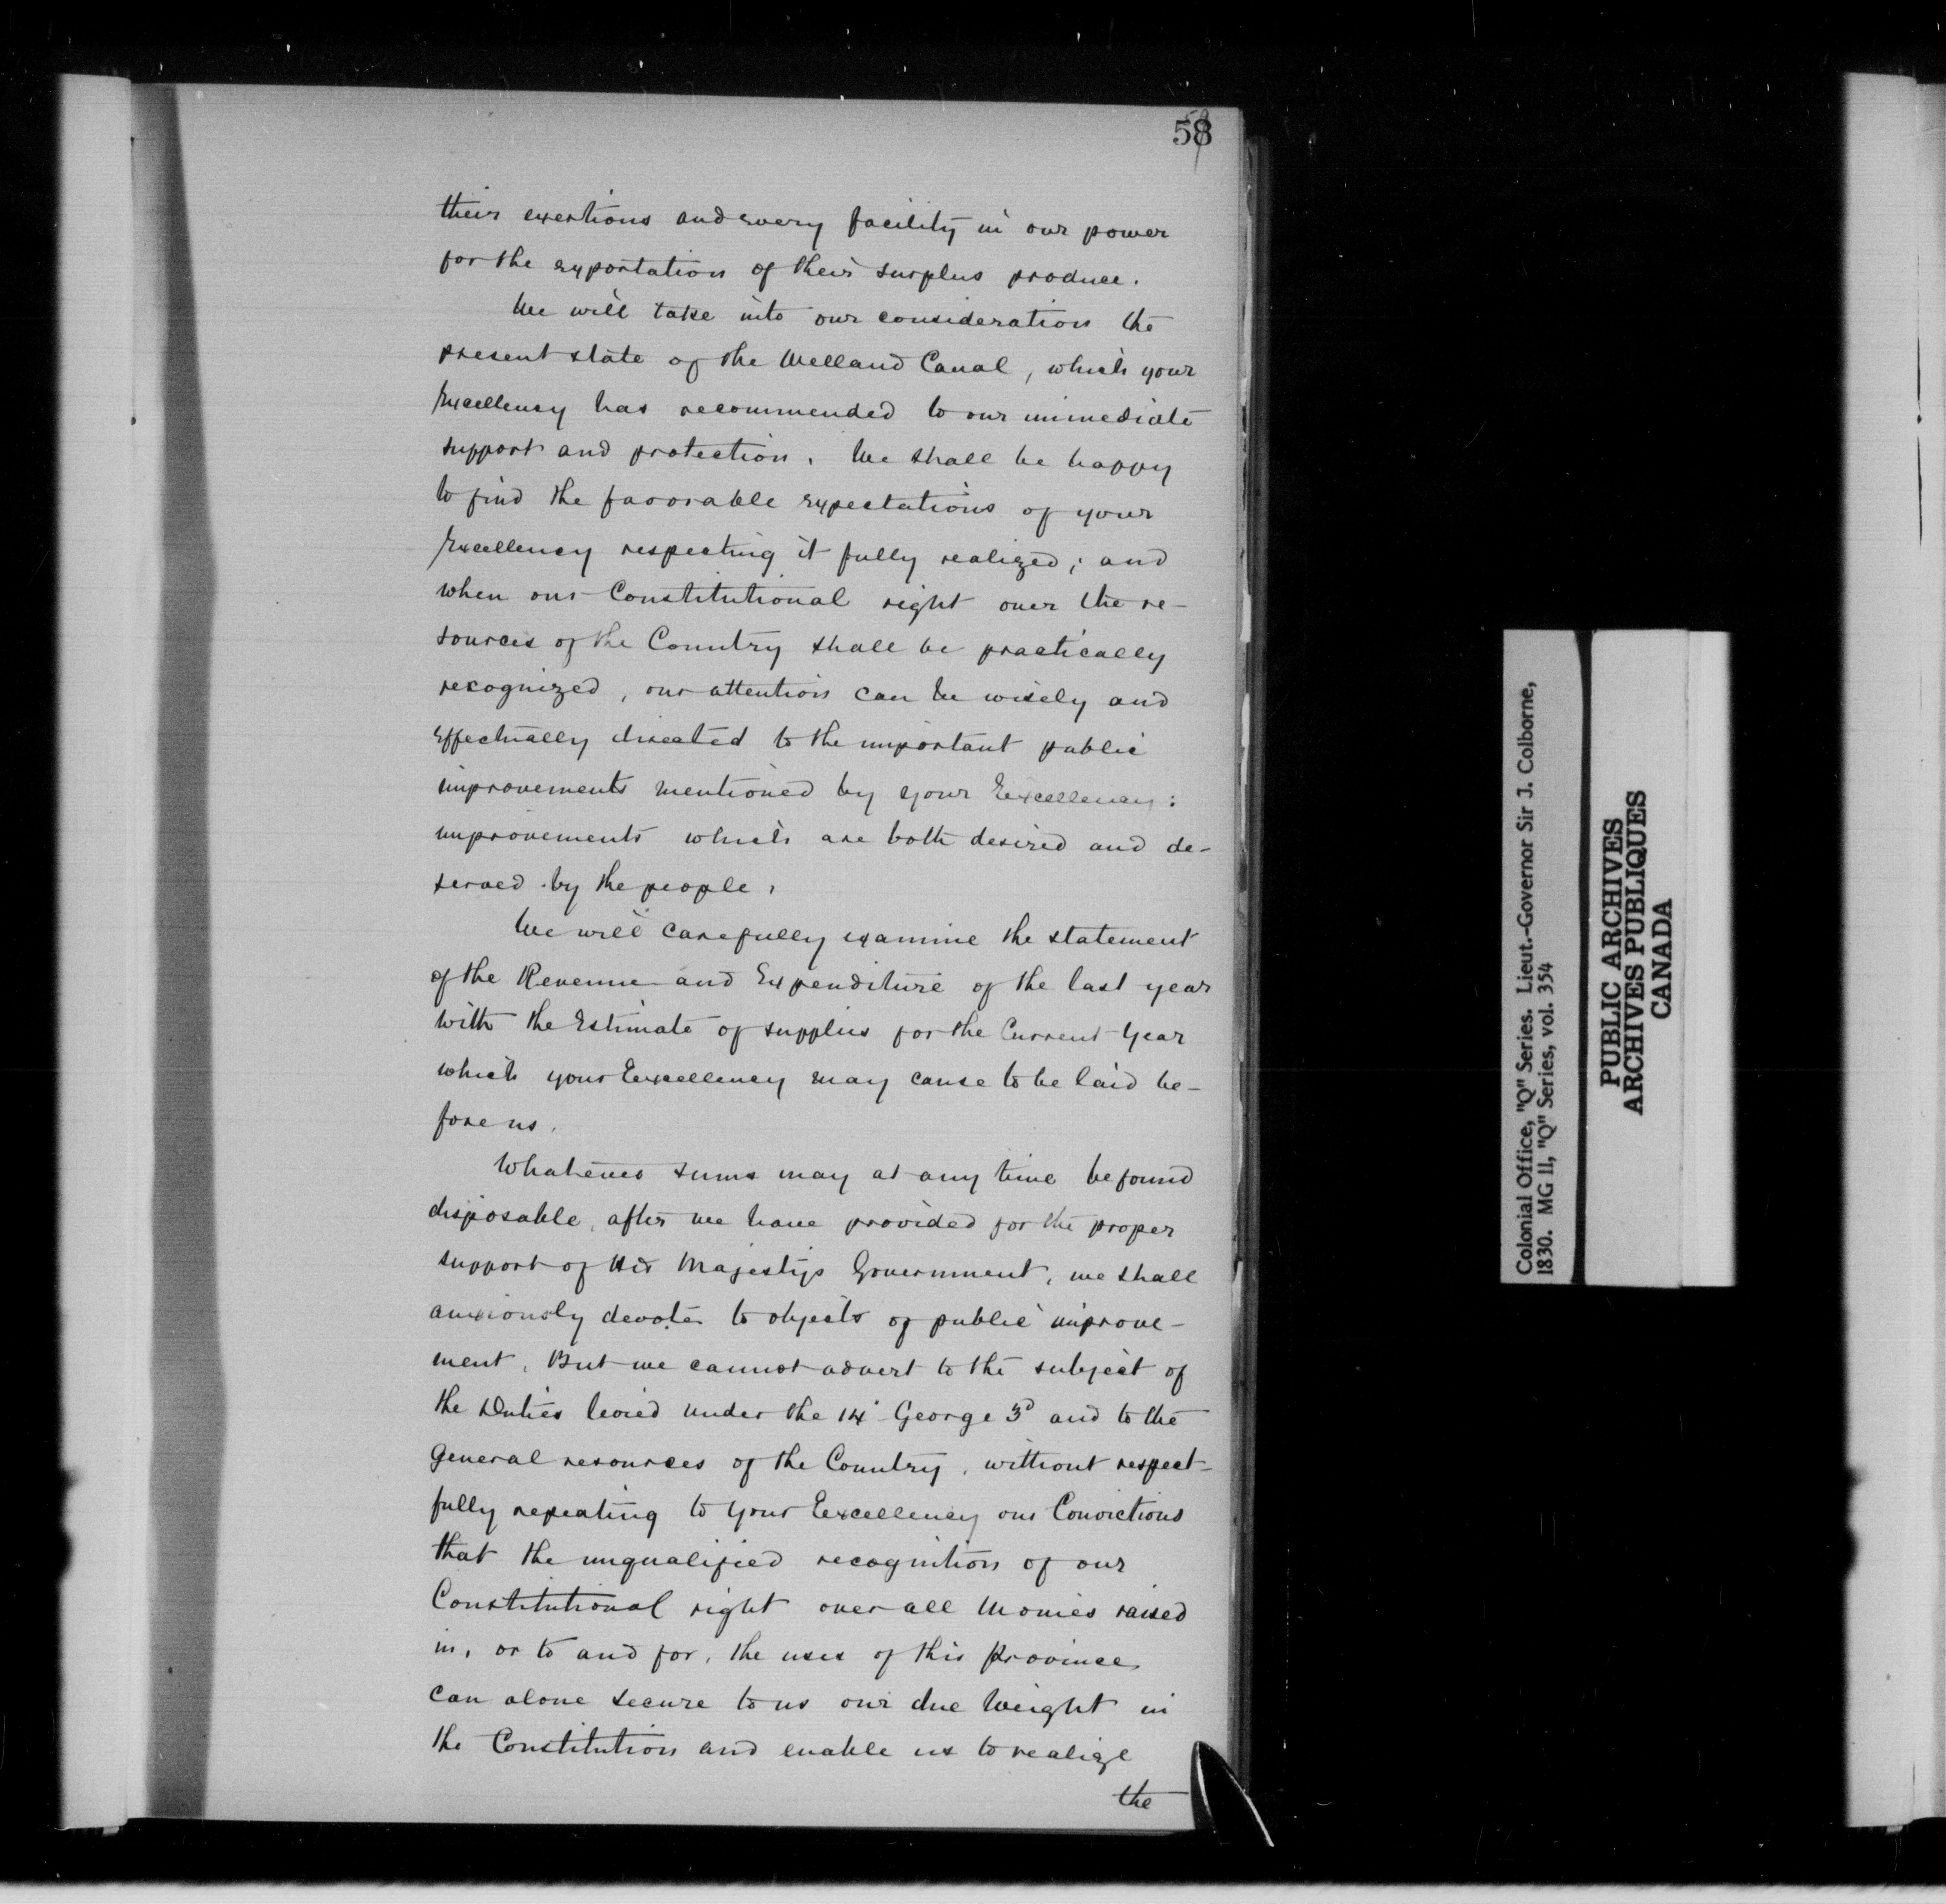 58
their exertions and every facility in our power
for the exportation of their surplus produce.
We will take into our consideration the
present state of the Welland Canal, which your
Excellency has recommended to our immediate
support and protection. We shall be happy
to find the favorable expectations of your
Excellency respecting it fully realized; and
when our Constitutional right over the re-
sources of the Country shall be practically
recognized, our attention can be wisely and
effectually directed to the important public
improvements mentioned by your Excellency:
improvements which are both desired and de-
served by the people.
We will carefully examine the statement
of the Revenue and Expenditure of the last year
with the Estimate of supplies for the Current Year
which your Excellency may cause to be laid be-
fore us.
Whatever sums may at any time be found
disposable, after we have provided for the proper
support of His Majesty's Government, we shall
anxiously devote to objects of public improve-
ment. But we cannot advert to the subject of
the Duties levied under the 14' George 3d and to the
General resources of the Country, without respect-
fully repeating to Your Excellency our Convictions
that the unqualified recognition of our
Constitutional right over all Monies raised
in, or to and for, the uses of this Province
can alone secure to us our due Weight in
the Constitution and enable us to realize
the
Colonial Office, "Q" Series. Lieut.-Governor Sir J. Colborne,
1830. MG 11, "Q" Series, vol. 354
PUBLIC ARCHIVES
ARCHIVES PUBLIQUES
CANADA